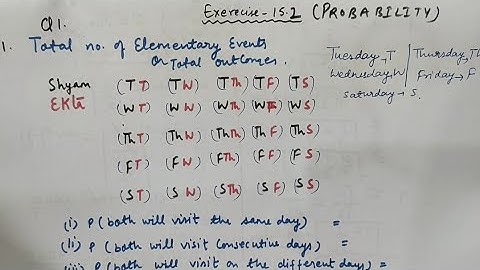 Q1.
Exercise-15.2 (PROBABILITY)
1. Total no. of Elementary Events
Or Total outcomes.
Tuesday, T
Thursday, Th
Wednesday, W
Friday, F
Saturday - S.
Shyam (T T) (T W) (T Th) (T F) (T S)
EKta (W T) (W W) (W Th) (W F) (W S)
(Th T) (Th W) (Th Th) (Th F) (Th S)
(F T) (F W) (F Th) (F F) (F S)
(S T) (S W) (S Th) (S F) (S S)
(i) P(both will visit the same day) =
(ii) P(both will visit Consecutive days) =
(iii) P(both will visit on the different days) =